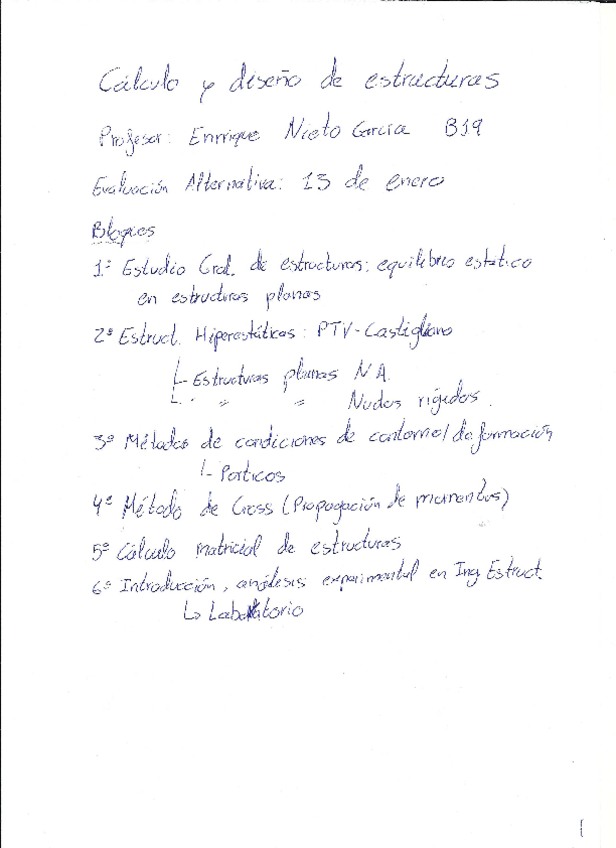 Cálculo y diseño de estructuras
Profesor: Enrrique Nieto García B19
Evaluación Alternativa: 13 de enero
Bloques
1º Estudio Gral. de estructuras: equilibrio estático
en estructuras planas
2º Estruct. Hiperestáticas: PTV-Castigliano
Estructuras planas N A.
" " " Nudos rígidos.
3º Métodos de condiciones de contorno/deformación
Porticos
4º Método de Cross (Propagación de momentos)
5º Cálculo matricial de estructuras
6º Introducción, análisis experimental en Ing Estruct.
↳ Laboratorio